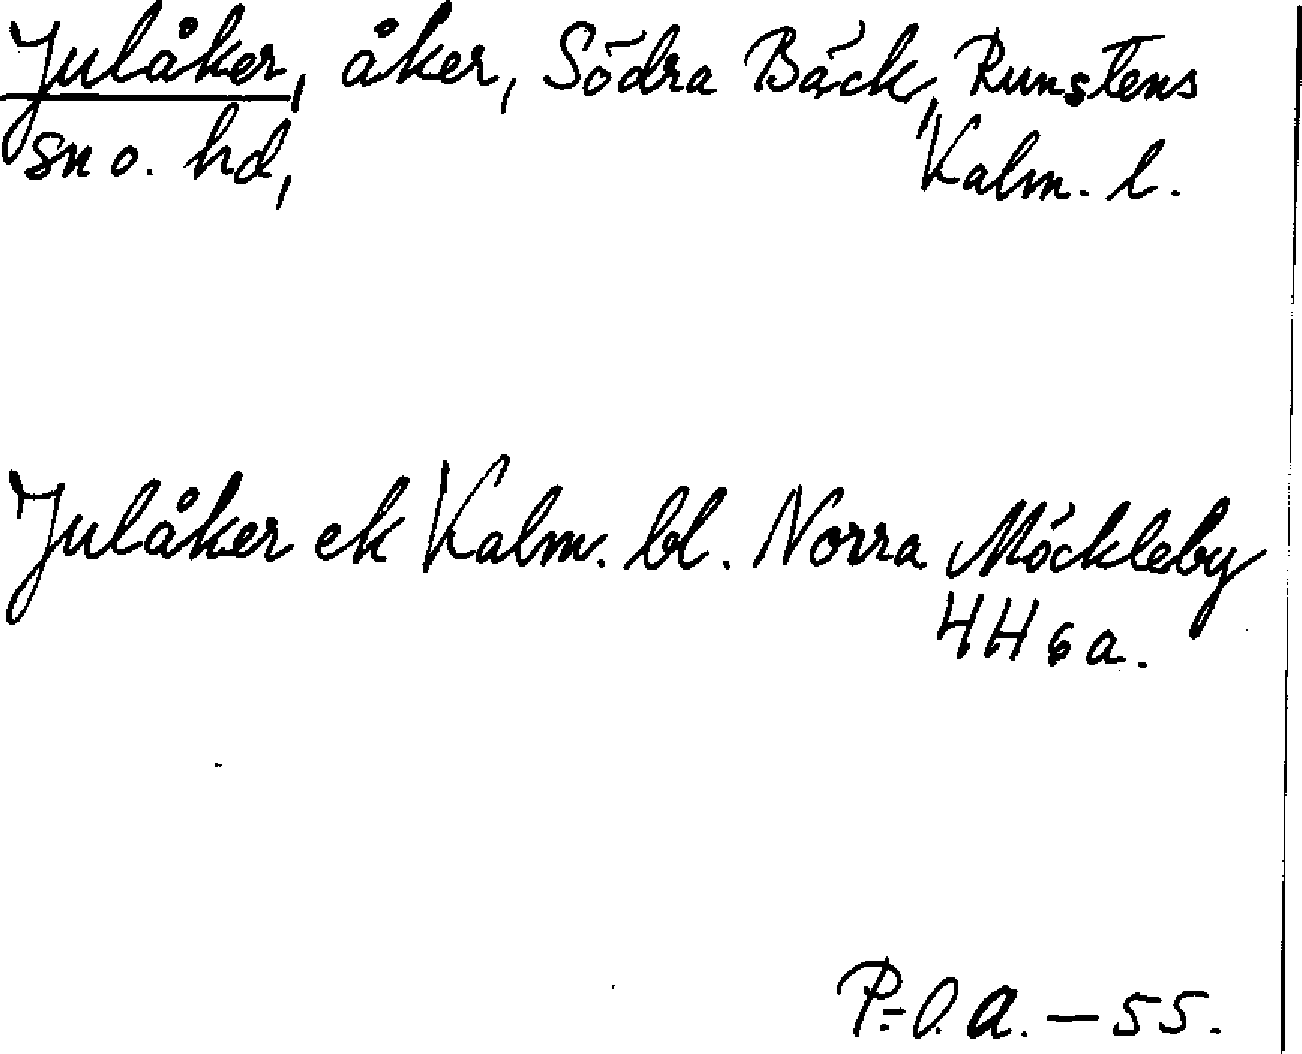 Julåker, åker, Södra Bäck, Runstens
sn o. hd, Kalm. l.
Julåker ek Kalm. bl. Norra Möckleby
4H6a.
P.-O. A. — 55.